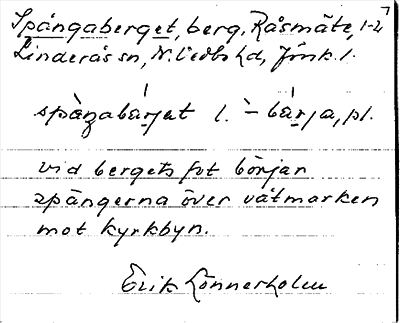 Spångaberget, berg, Råsmåte, 1-2
Linderås sn, N. Vedbo hd, Jönk. l.
spàŋabár̯jet l. `– bár̯ja, pl.
vid bergets fot börjar
spängerna över våtmarken
mot kyrkbyn.
Erik Lönnerholm